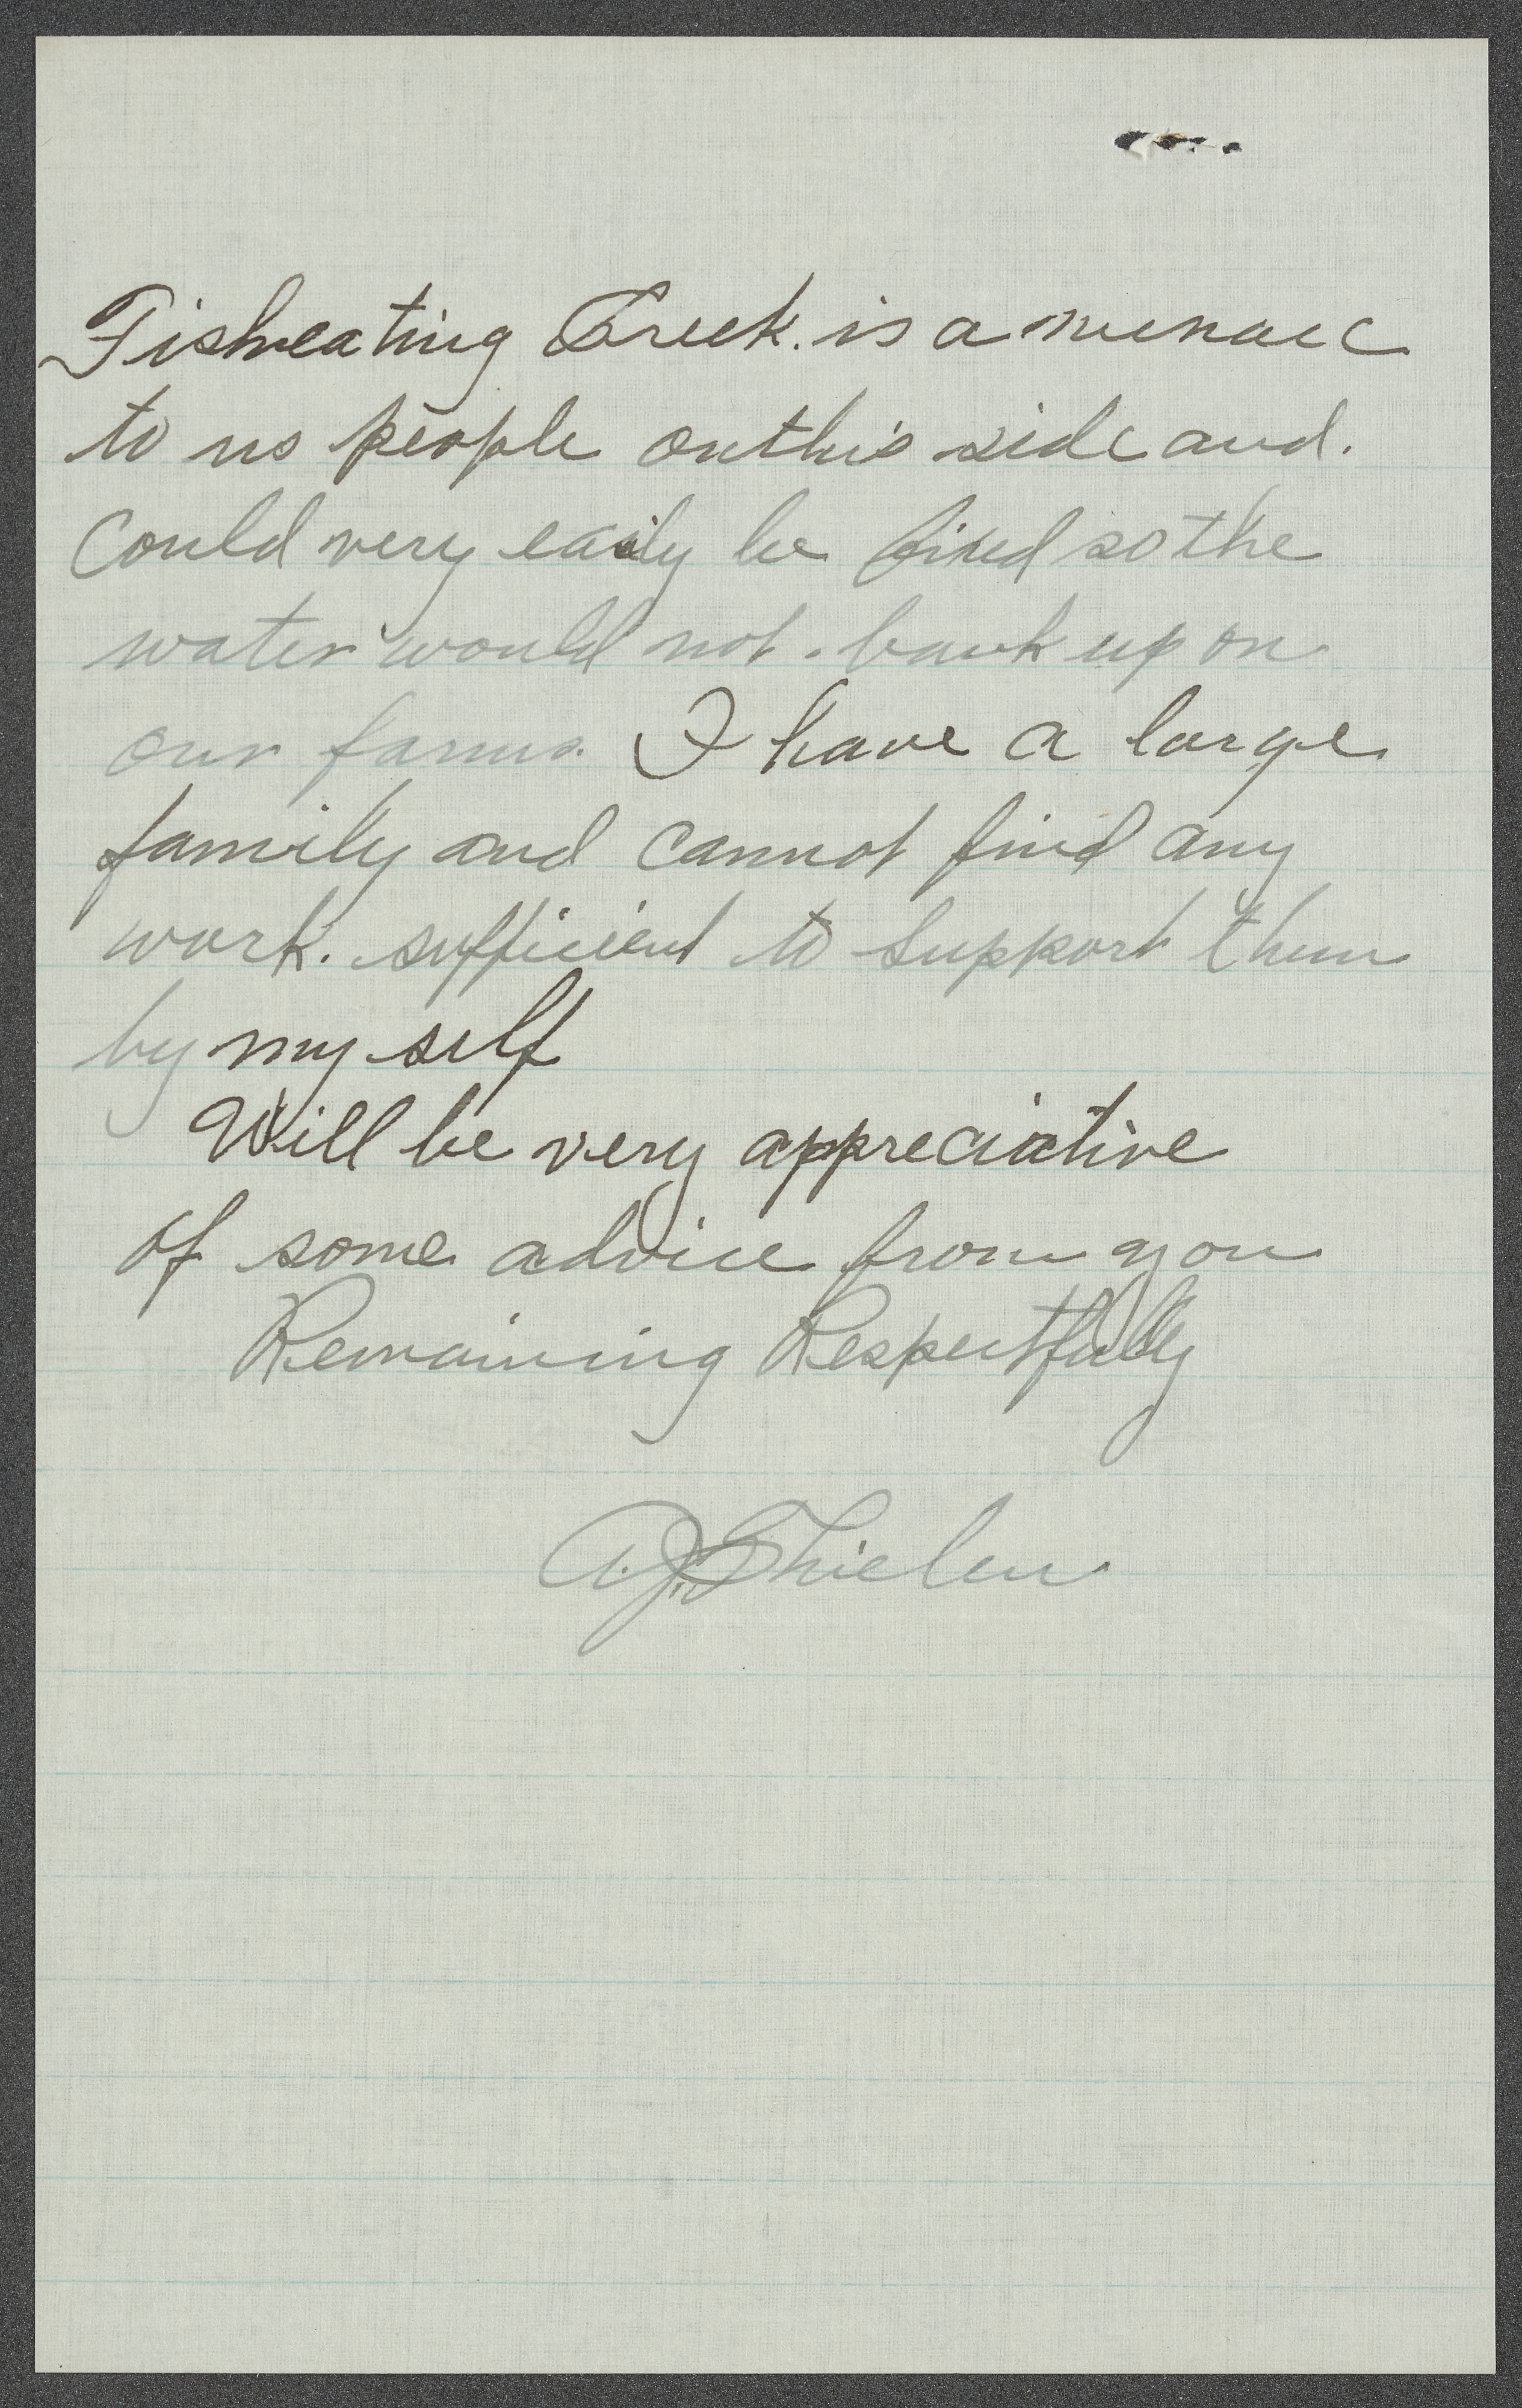 Fisheating Creek. is a menace
to us people on this side and.
Could very easily be fixed so the
water would not. bank up on
our farms. I have a large
family and cannot find any
work. sufficient to support them
by my self
Will be very appreciative
of some advice from you
Remaining Respectfully
A.J. Thielen